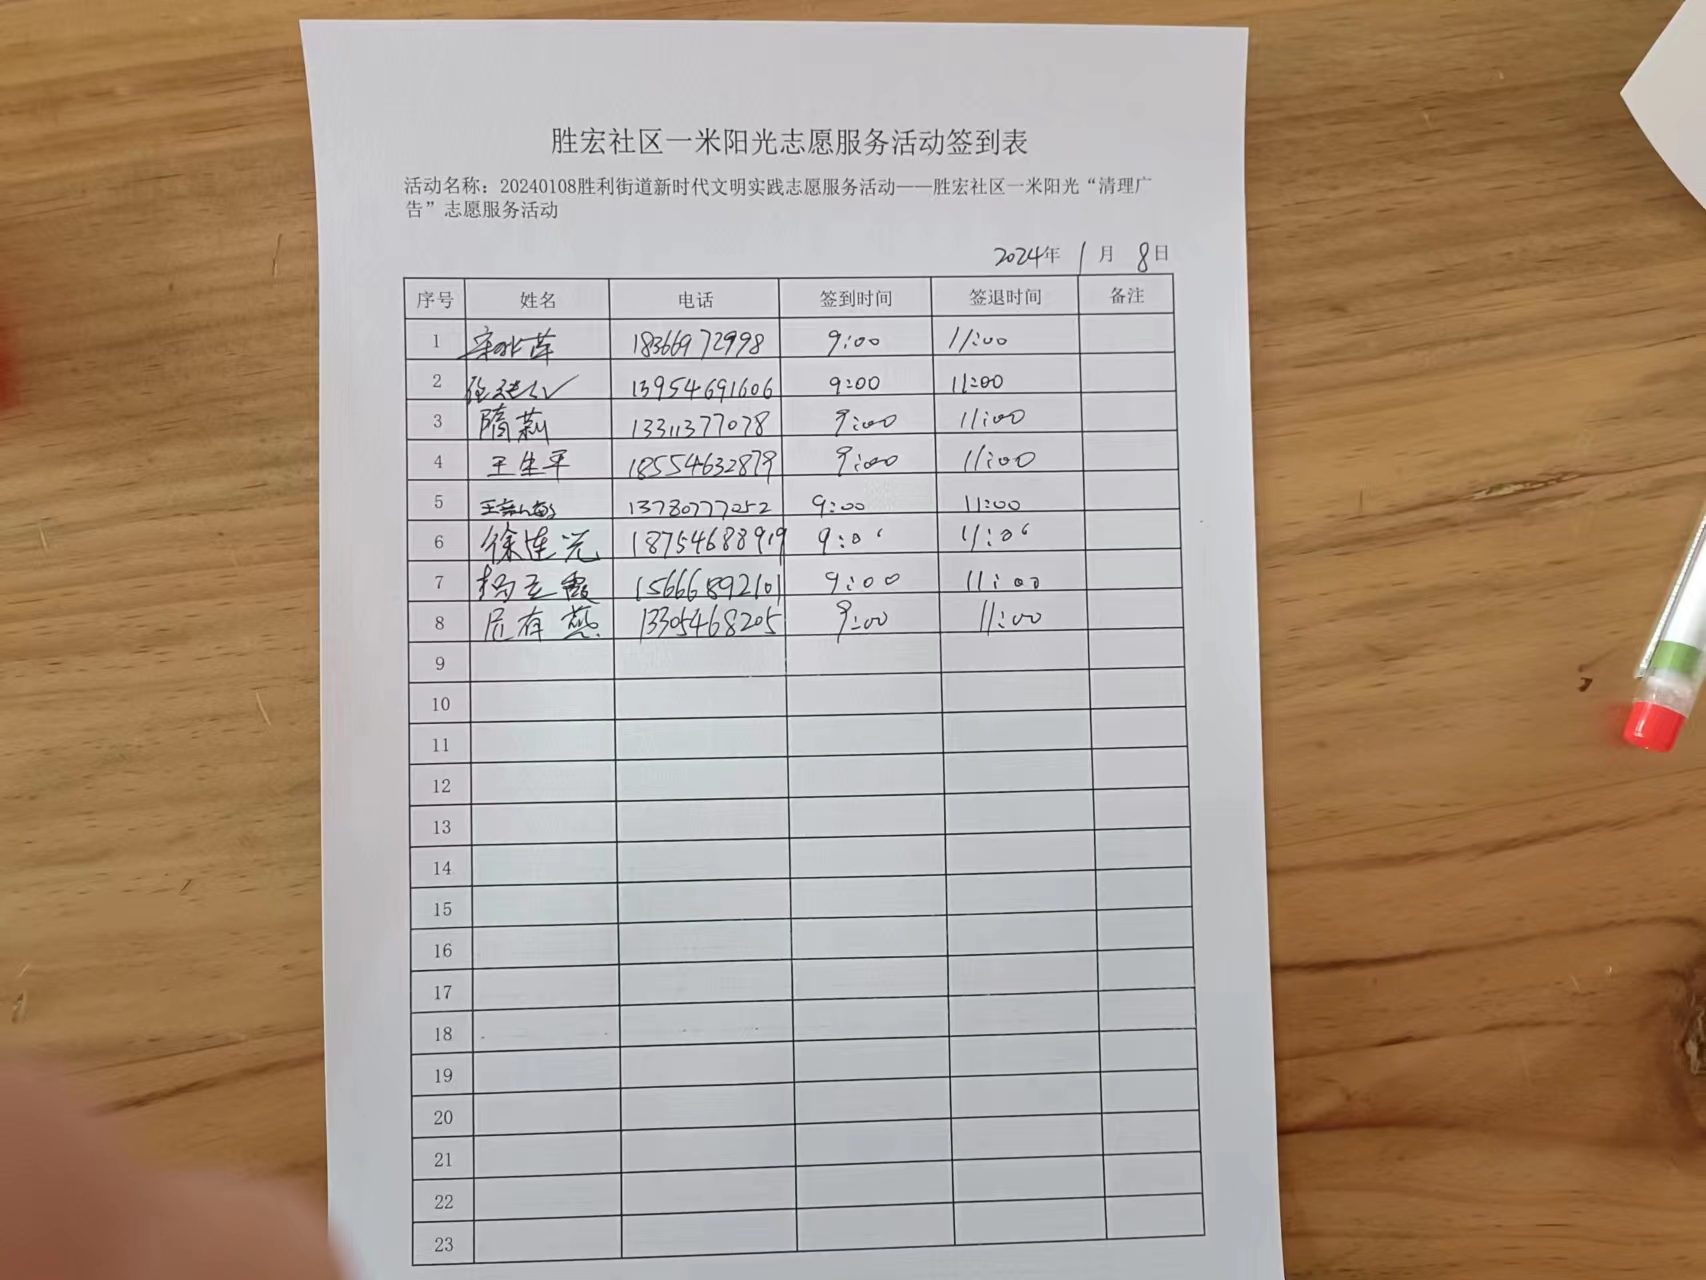 胜宏社区一米阳光志愿服务活动签到表
活动名称：20240108胜利街道新时代文明实践志愿服务活动——胜宏社区一米阳光“清理广
告”志愿服务活动
2024年 1 月 8日
序号 姓名 电话 签到时间 签退时间 备注
1 18366972998 9:00 11:00
2 13954691606 9:00 11:00
3 隋莉 13311377078 9:00 11:00
4 王生平 18554632879 9:00 11:00
5 13780777052 9:00 11:00
6 徐连光 18754688919 9:00 11:00
7 杨立霞 15666892101 9:00 11:00
8 尼有燕 13305468205 9:00 11:00
9
10
11
12
13
14
15
16
17
18
19
20
21
22
23